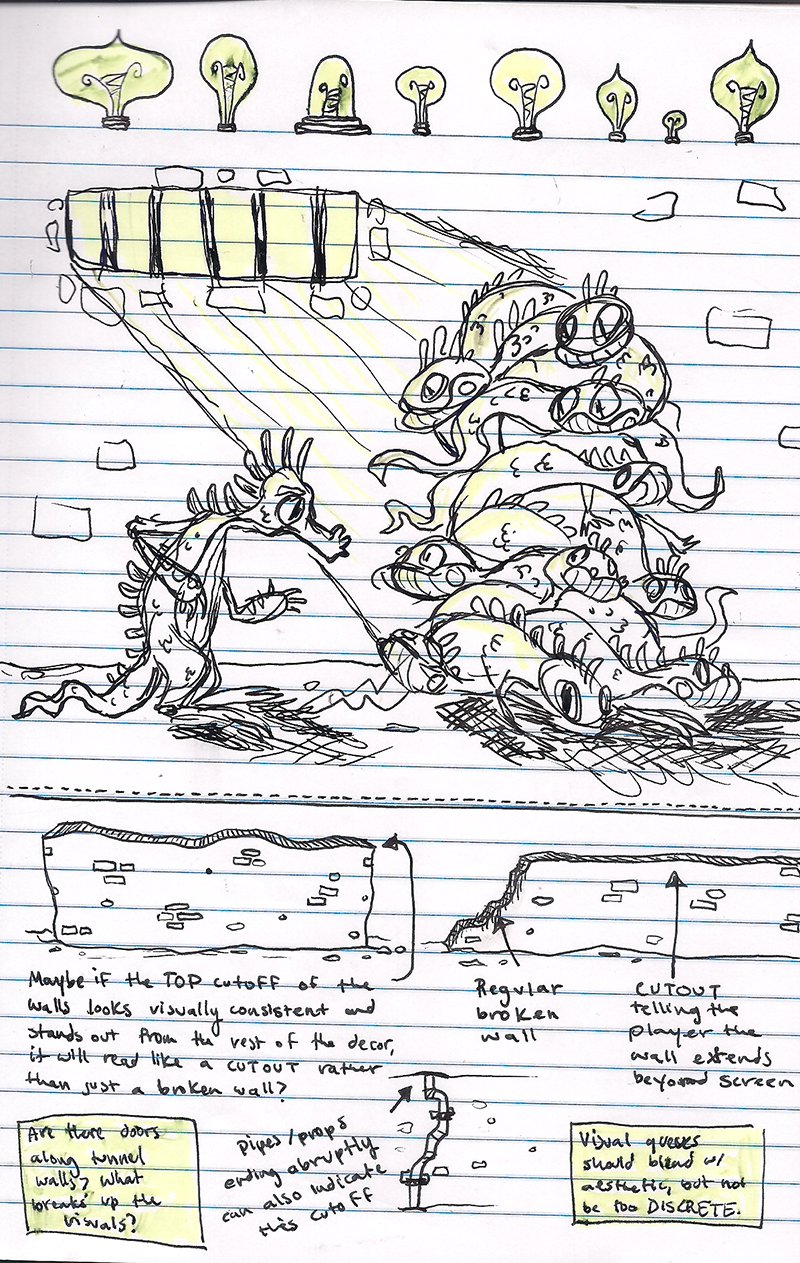 Maybe if the TOP cutoff of the
walls looks visually consistent and
stands out from the rest of the decor,
it will read like a CUTOUT rather
than just a broken wall?
Regular
broken
wall
CUTOUT
telling the
player the
wall extends
beyond screen
Are there doors
along tunnel
walls? What
breaks up the
visuals?
Pipes/props
ending abruptly
can also indicate
this cutoff
Visual queues
should blend w/
aesthetic, but not
be too DISCRETE.